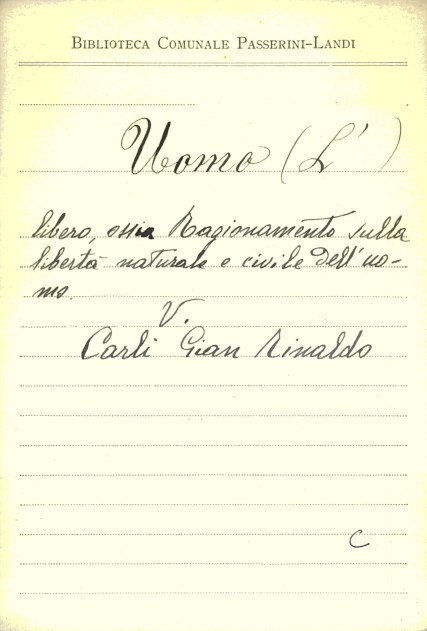 BIBLIOTECA COMUNALE PASSERINI-LANDI
Uomo (L')
libero, ossia Ragionamento sulla
libertà naturale e civile dell'uo-
mo.
V.
Carli Gian Rinaldo
C